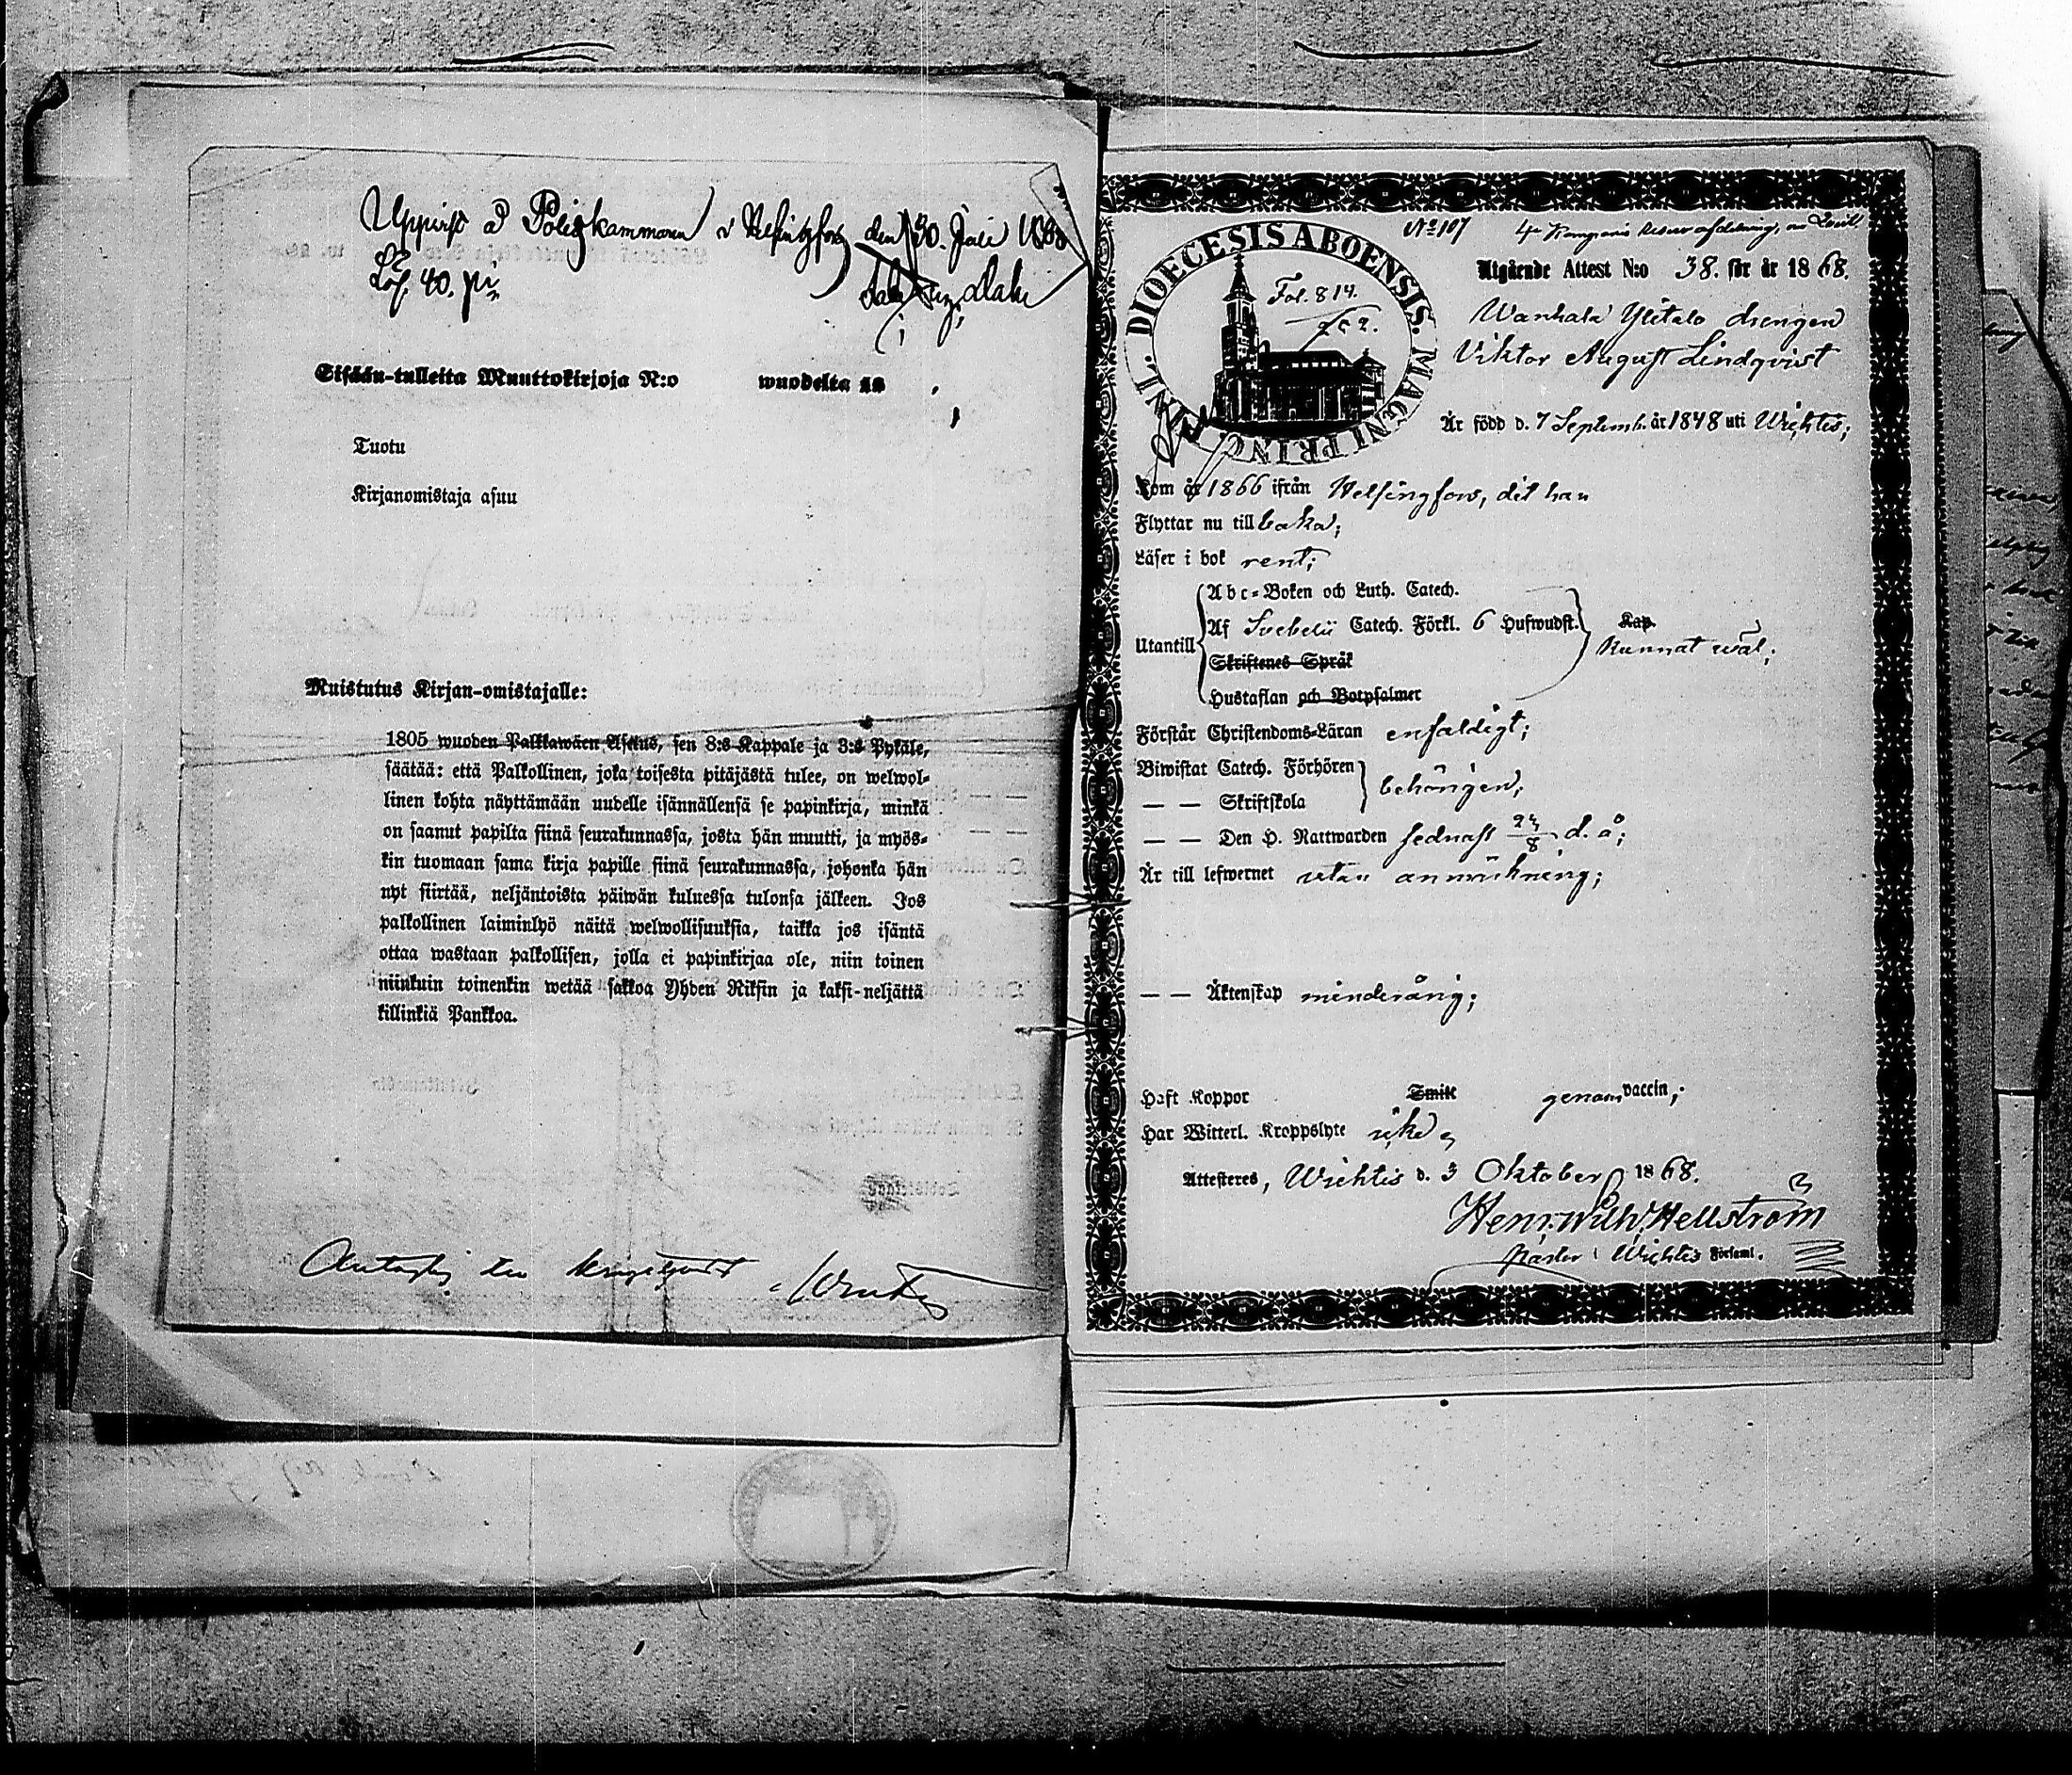 Uppvist å Poliskammaren i Helsingfors den 30. Juli 1868
Lös. 40. pi
Sisään-tulleita Muuttokirjoja N:o wuodelta 18
Tuotu
Kirjanomistaja asuu
Muistutus Kirjan-omistajalle:
1805 wuoden Palkkawäen Asetus, sen 8:s Kappale ja 3:s Pykäle,
säätää: että Palkollinen, joka toisesta pitäjästä tulee, on welwol-
linen kohta näyttämään uudelle isännällensä se papinkirja, minkä
on saanut papilta siinä seurakunnassa, josta hän muutti, ja myös-
kin tuomaan sama kirja papille siinä seurakunnassa, johonka hän
nyt siirtää, neljäntoista päiwän kuluessa tulonsa jälkeen. Jos
palkollinen laiminlyö näitä welwollisuuksia, taikka jos isäntä
ottaa wastaan palkollisen, jolla ei papinkirjaa ole, niin toinen
niinkuin toinenkin wetää sakkoa Yhden Riksin ja kaksi-neljättä
killinkiä Pankkoa.
No 107
DIOECESIS ABOENSIS. MAGNI PRINC. FINL.
Fol. 814.
Utgående Attest N:o 38. för år 1868.
Wanhala Ylitalo drengen
Viktor August Lindqvist
Är född d. 7 Septemb. år 1848 uti Wichtis;
Kom år 1866 ifrån Helsingfors, dit han
Flyttar nu tillbaka;
Läser i bok rent;
Abc-Boken och Luth. Catech.
Utantill Af Svebelii Catech. Förkl. 6 Hufwudst. Kap.
Kunnat wäl;
Skriftenes Språk
Hustaflan och Botpsalmer
Förstår Christendoms-Läran enfaldigt;
Biwistat Catech. Förhören
behörigen;
— — Skriftskola
— — Den H. Nattwarden sednast 23/8 d. å;
Är till lefwernet utan anmärkning;
— — Äktenskap minderårig;
Haft Koppor Smitt genom vaccin;
Har Witterl. Kroppslyte icke
Attesteras, Wichtis d. 3 Oktober 1868.
Henr. Wilh. Hellström
Pastor i Wichtis Församl.